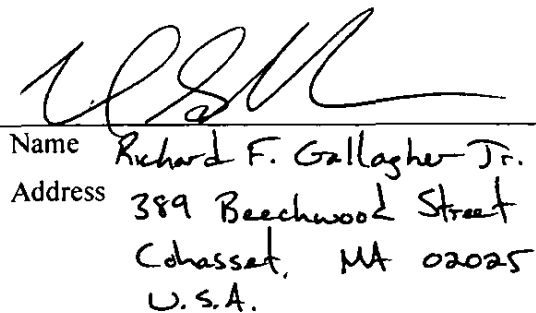 Name Richard F. Gallagher Jr.
Address 389 Beechwood Street
Cohasset, MA 02025
U.S.A.